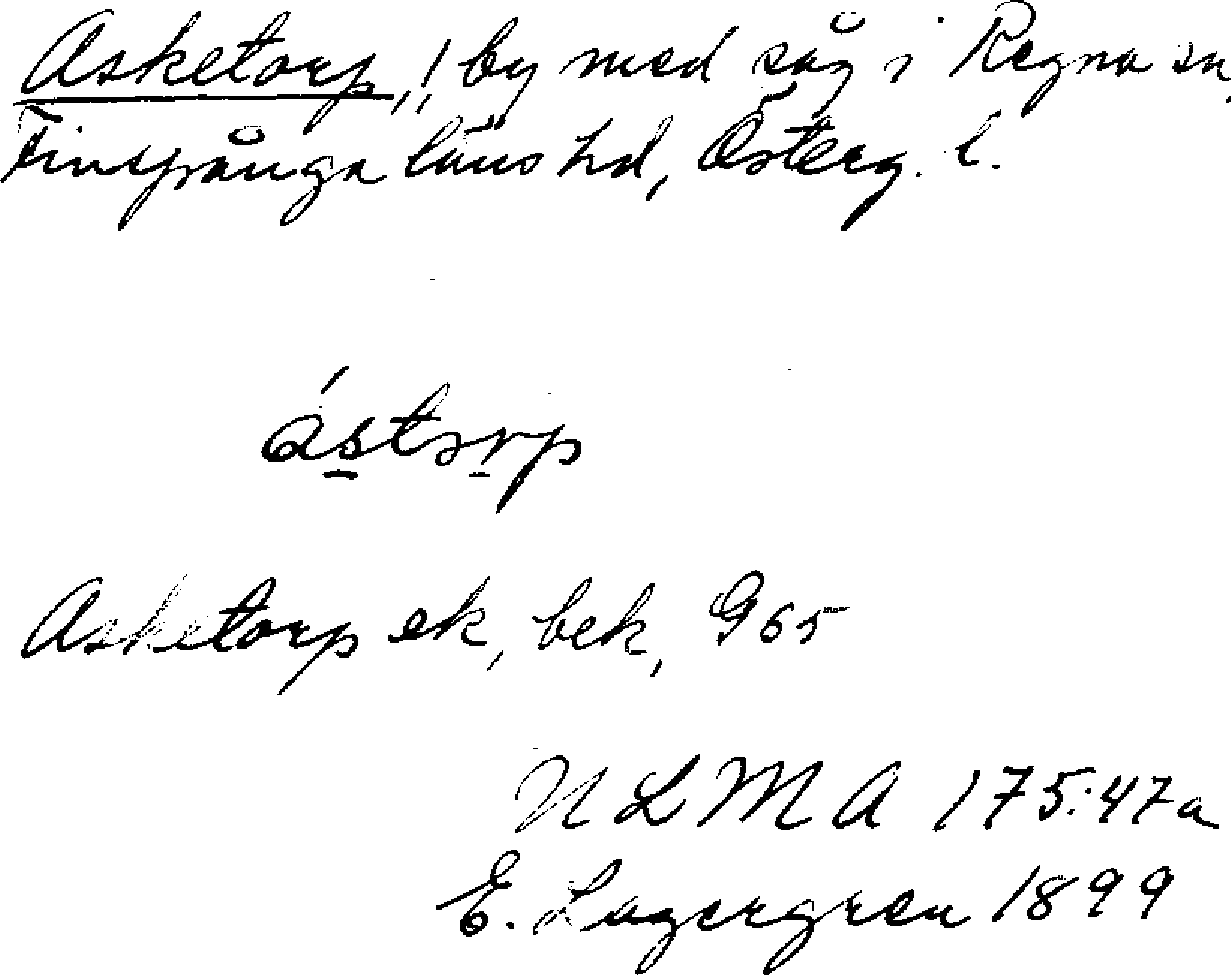 Asketorp, ! by med såg i Regna sn,
Finspånga läns hd, Österg. l.
ástorp
Asketorp ek, bek, G65
NLMA 175:47a
E. Lagergren 1899